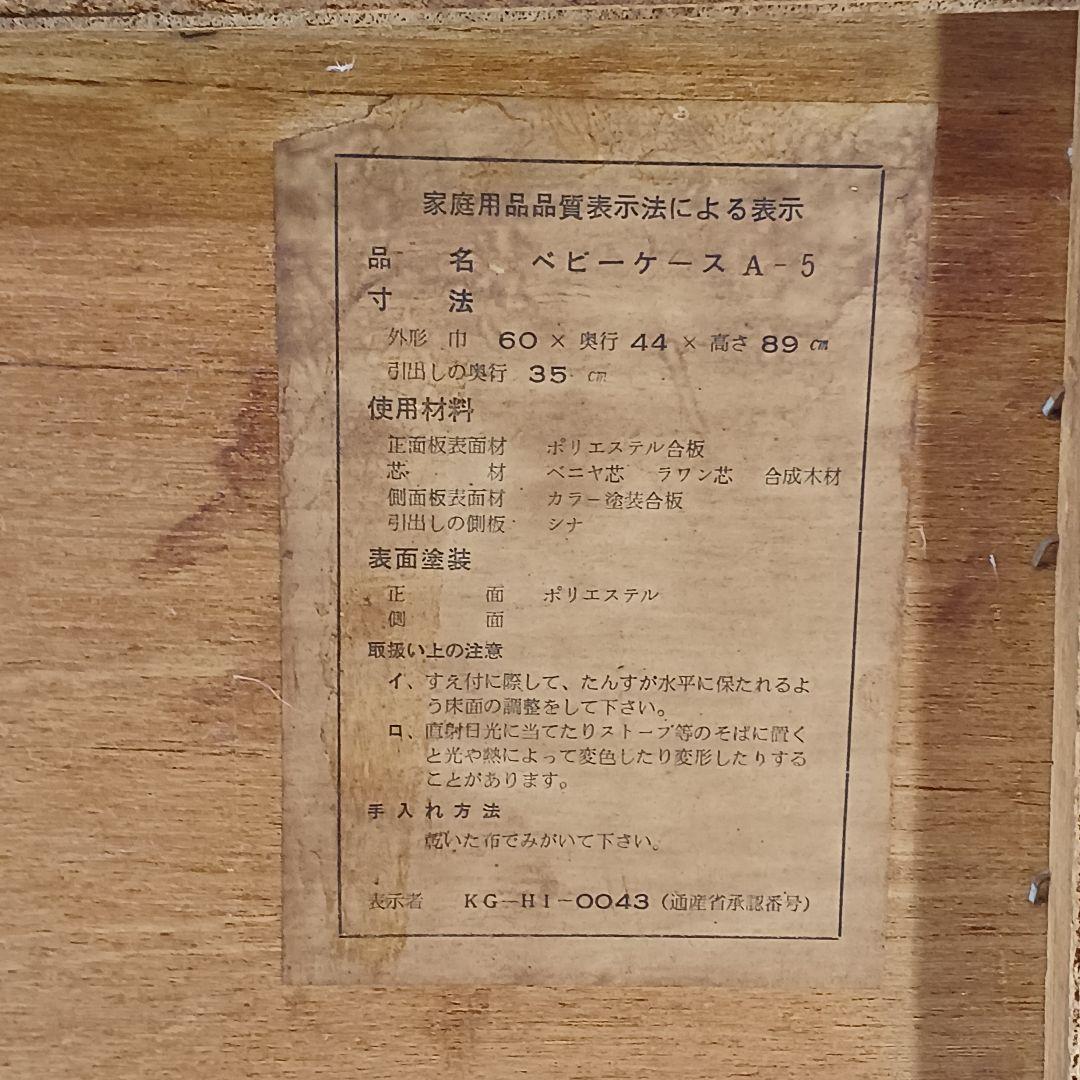 家庭用品品質表示法による表示
品名 ベビーケース A-5
寸法
外形 巾 60 × 奥行 44 × 高さ 89 cm
引出しの奥行 35 cm
使用材料
正面板表面材 ポリエステル合板
芯材 ベニヤ芯 ラワン芯 合成木材
側面板表面材 カラー塗装合板
引出しの側板 シナ
表面塗装
正面 ポリエステル
側面
取扱い上の注意
イ、すえ付に際して、たんすが水平に保たれるよ
う床面の調整をして下さい。
ロ、直射日光に当てたりストーブ等のそばに置く
と光や熱によって変色したり変形したりする
ことがあります。
手入れ方法
乾いた布でみがいて下さい。
表示者 KG-HI-0043 (通産省承認番号)